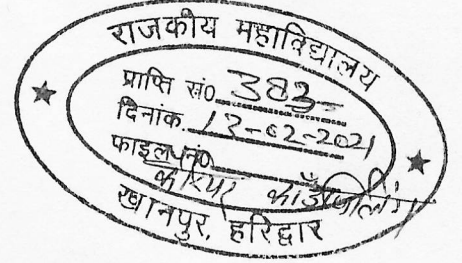 राजकीय महाविद्यालय
प्राप्ति सं० 383
दिनांक 12-02-2021
फाइल सं०
कैरियर काउंसिलिंग
खानपुर, हरिद्वार